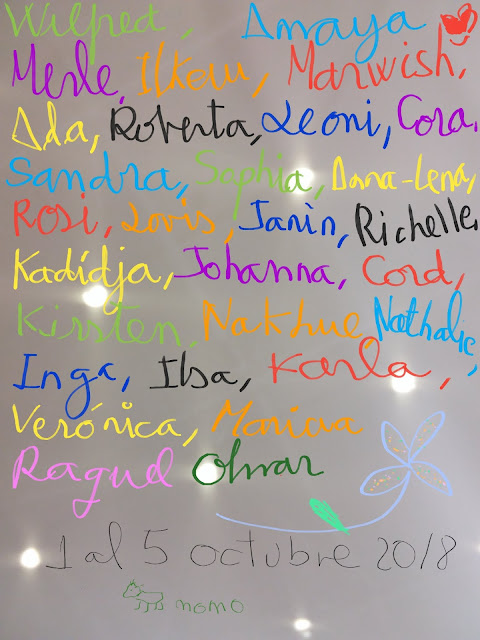 Wilfred, Amaya
Merle, Ilkou, Marwish,
Ada, Roberta, Leoni, Cora,
Sandra, Saphia, Anna-Lena,
Rosi, Lovis, Janin, Richelle,
Kadídja, Johanna, Cord,
Kirsten, Nathalie,
Inga, Ilsa, Karla,
Verónica,
Raquel Olmar
1 al 5 octubre 2018
momo